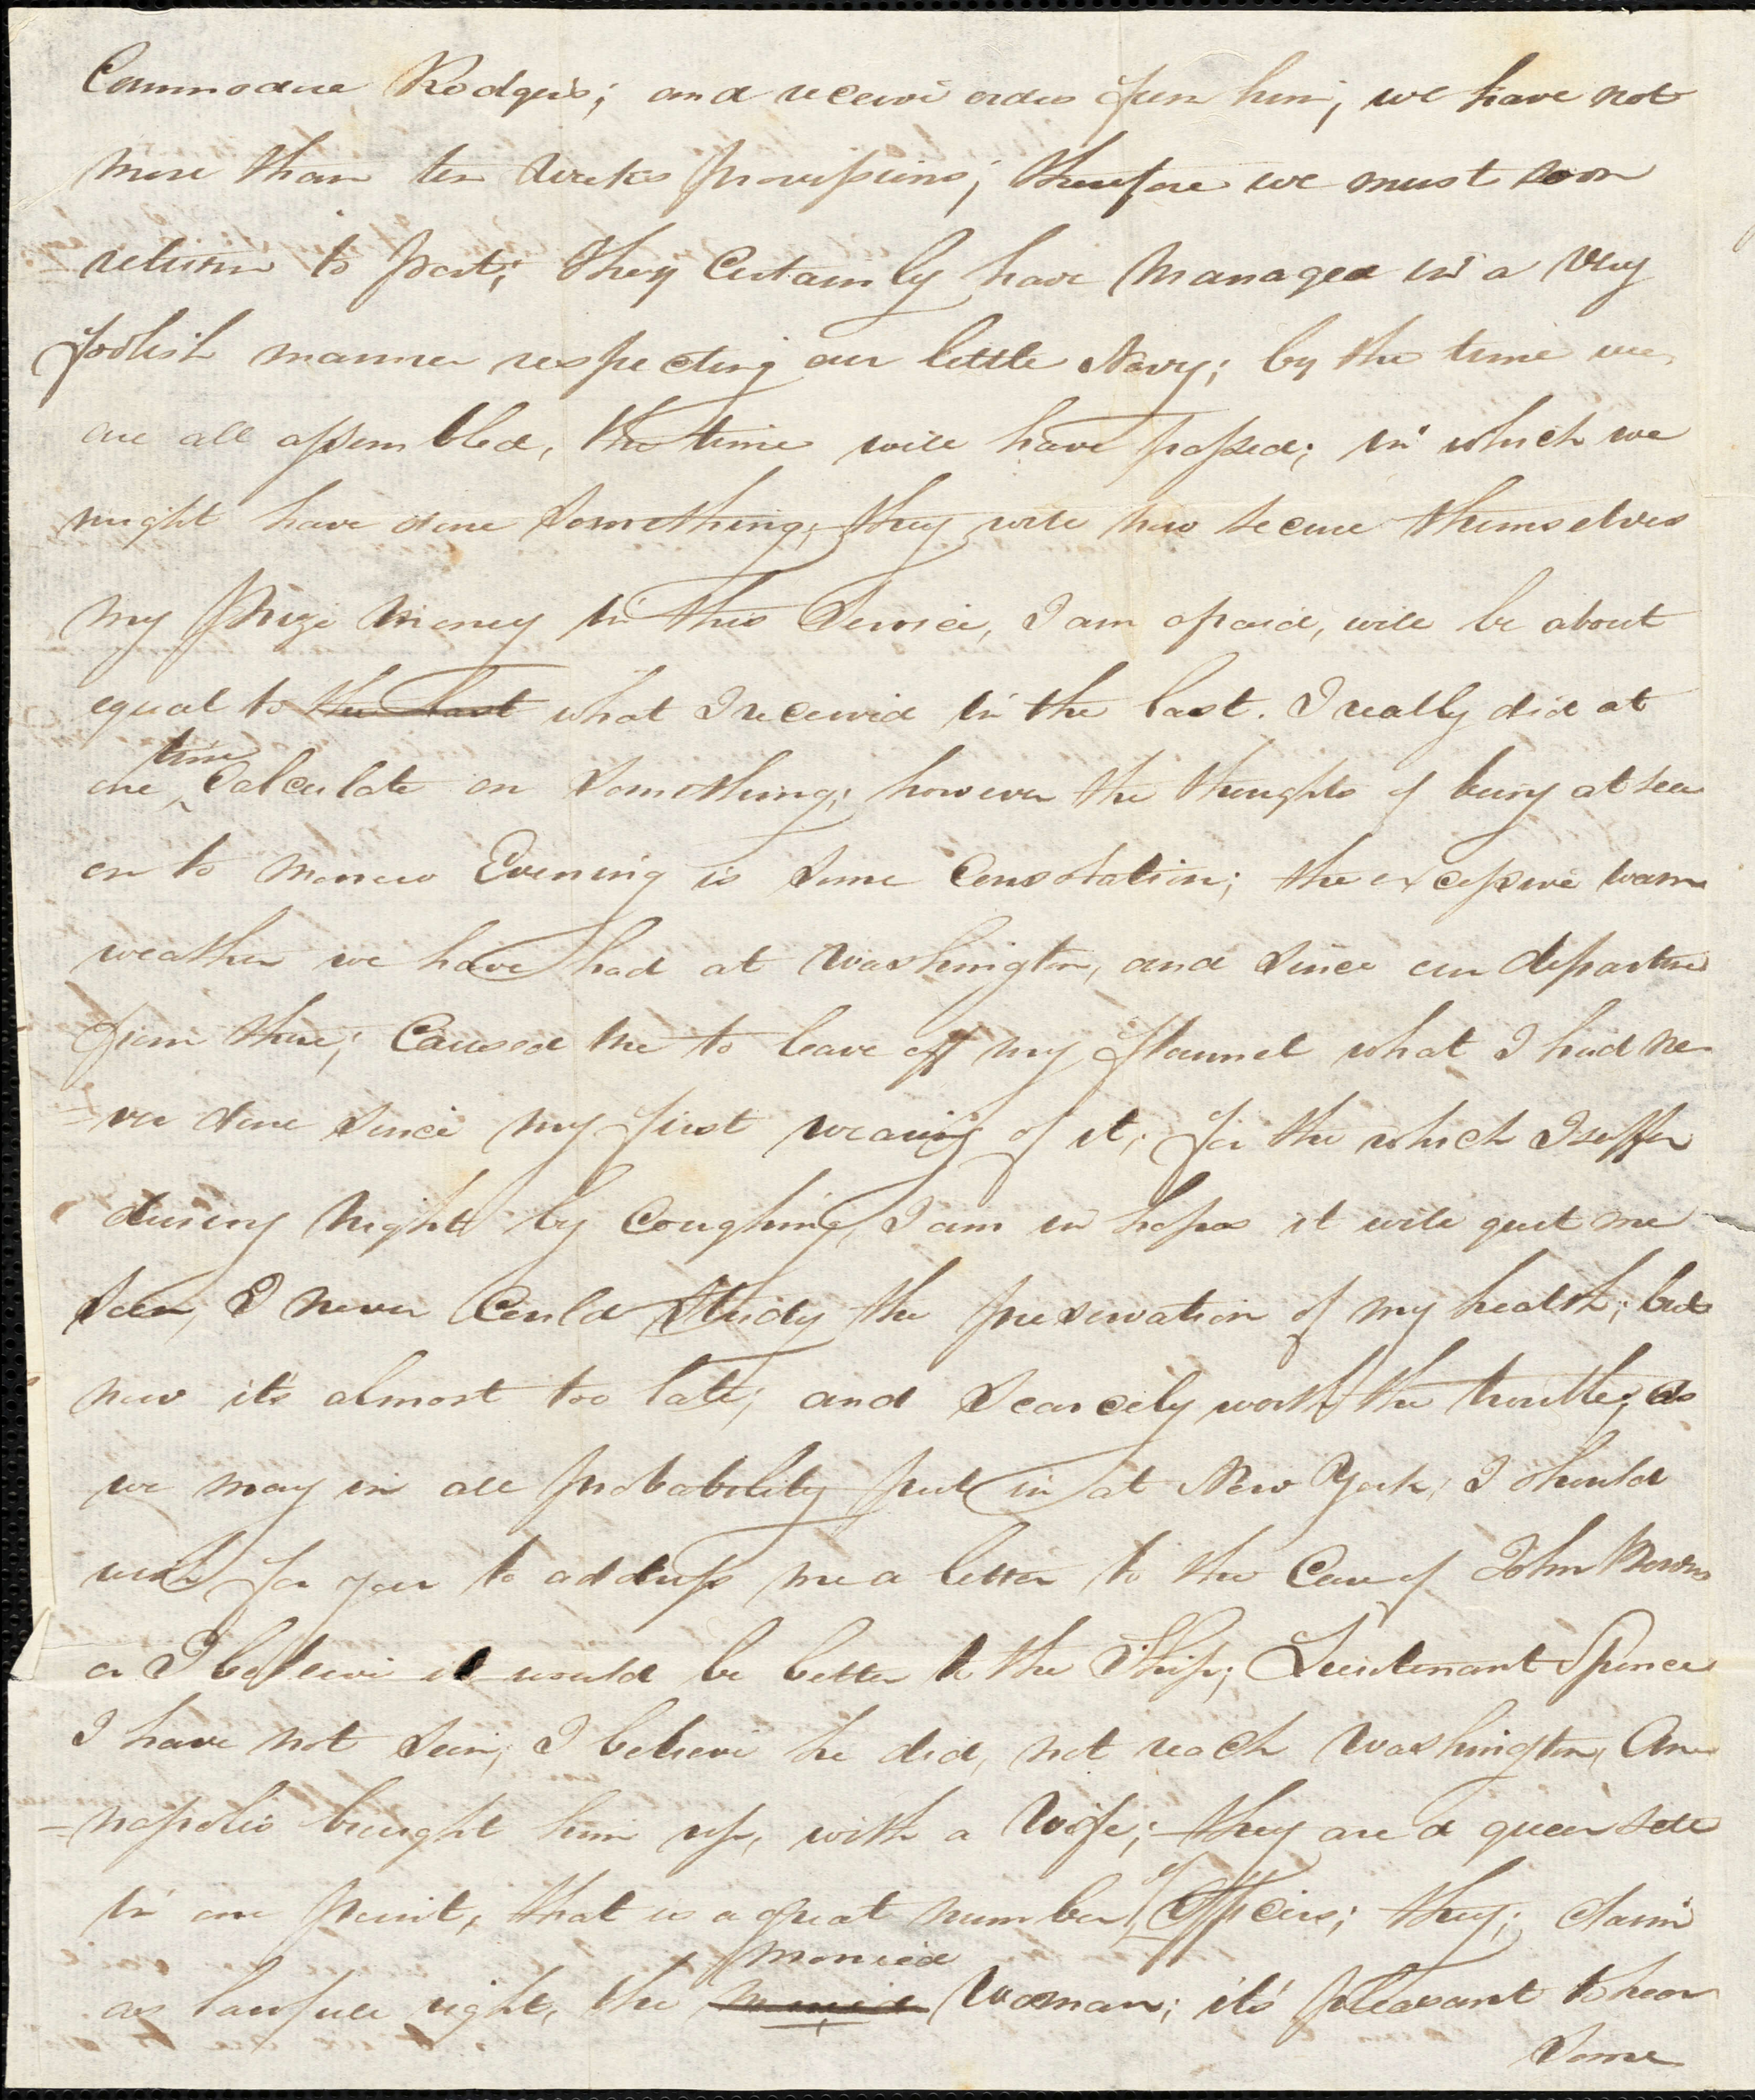 Commodore Rodgers; and receive orders from him, we have not
more than ten weeks provisions; therefore we must soon
=return to port; they Certainly have managed in a very
foolish manner respecting our little Navy; by the time we
are all assembled, the time will have passed; in which we
might have done Something, they will now secure themselves
my prize Money in this Service, I am afraid, will be about
equal to the last what I received in the last. I really did at
one time Calculate on Something; however the thoughts of being at sea
on to morrow Evening is some Consolation; the excessive warm
weather we have had at Washington, and since our departure
from there; Caused me to leave off my flannel what I had ne-
=ver done since my first wearing of it, for the which I suffer
during night by Coughing, I am in hopes it will quit me
soon, I never Could Study the preservation of my health; but
now its almost too late; and scarcely worth the trouble; as
we may in all probability put in at New York, I should
wish for you to address me a letter to the Care of John
or I believe it would be better to the Ship; Lieutenant Spence
I have not seen, I believe he did, not reach Washington, An-
=napolis brought him up, with a Wife; they are a queer sett
in one point, that is a great number of Officers; they; claim
as lawfull right, the monied Woman; its pleasant to hear
Some